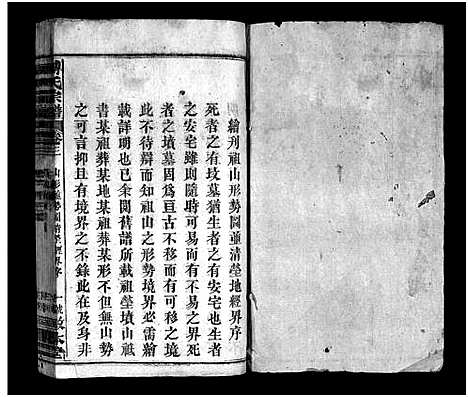 繪刋祖山形勢圖並清塋地經界序
死者之有坟墓猶生者之有安宅也生者
之安宅雖則有時可易而不易之界死
者之墳墓固爲亘古不移而有可移之境
此不待辯而知祖山之形勢境界必需繪
載詳明也已余閱舊譜所載祖塋墳山祗
書某祖葬某地某祖葬某形不但無山勢
之可言抑且有境界之不錄此在及身非
氏宗譜
卷三